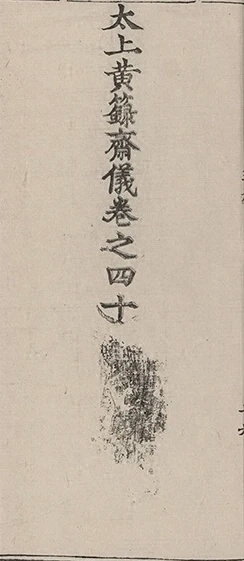 太上黃籙齋儀卷之四十